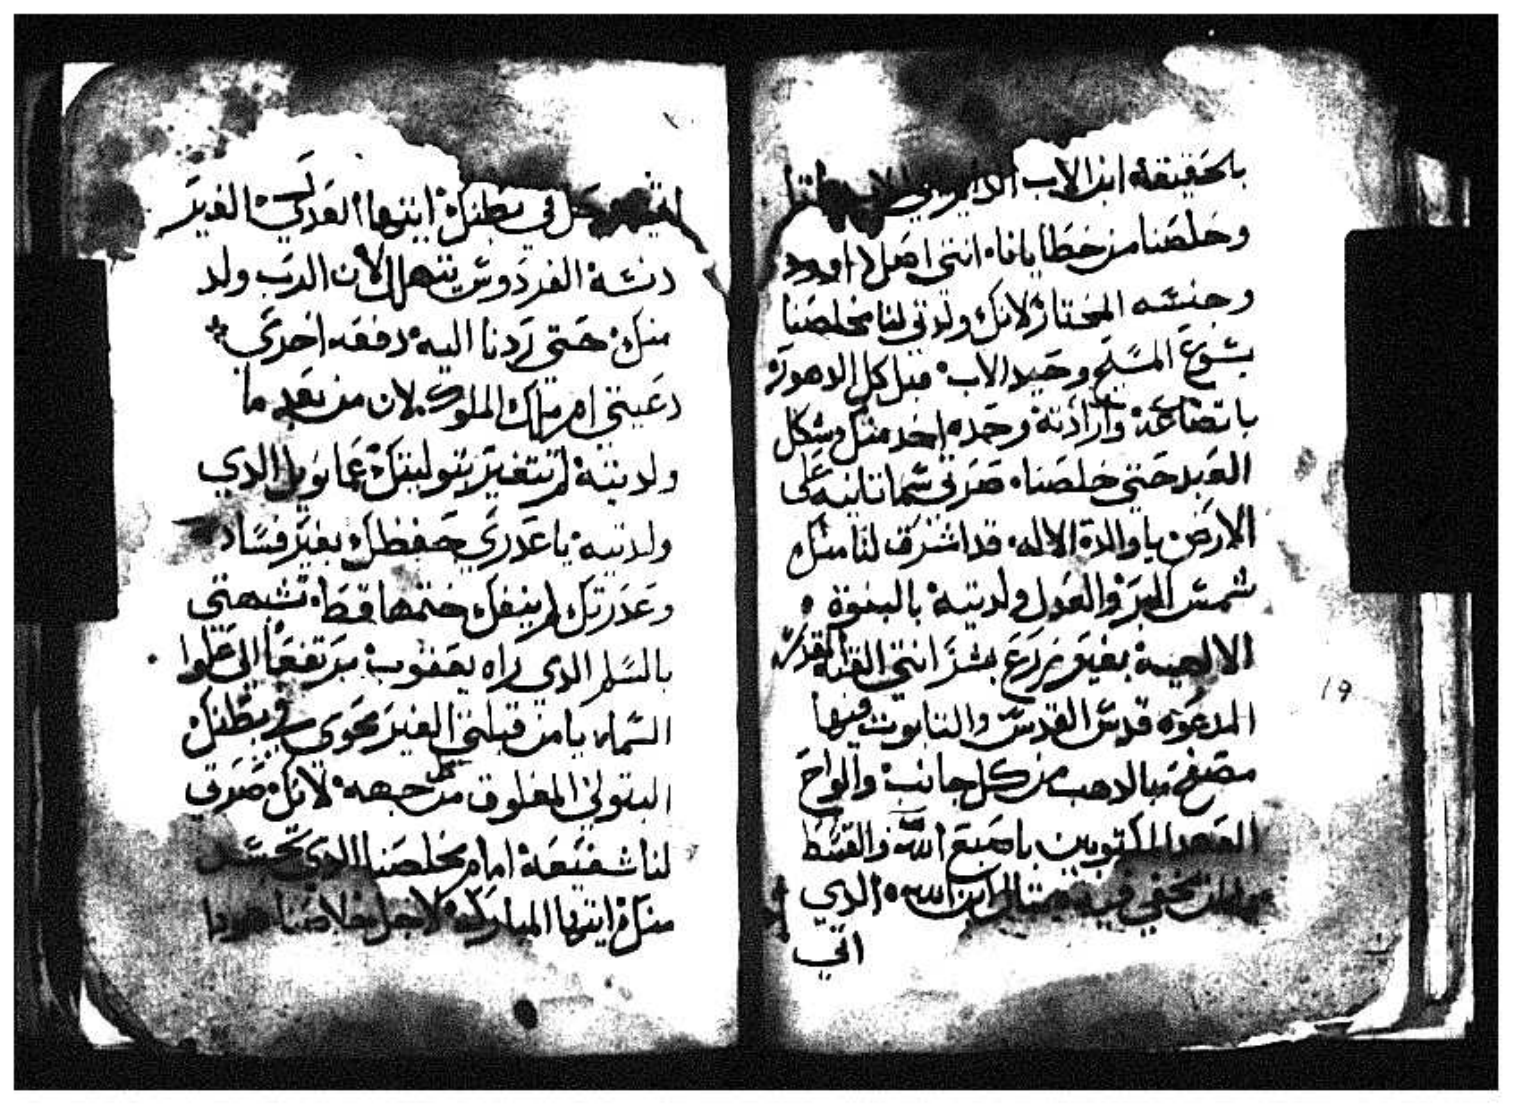 بالحقيقة ابن الاب الدايم
وخلصنا من خطايانا، انتي اصل داوود
وجنسه المختار لانك ولدتي لنا مخلصنا
يسوع المسيح وحيد الاب قبل كل الدهور
باتضاعة وارادته وحده اخد منك شكل
العبد حتى خلصنا، صرتي سما تانيه على
الارض يا والدة الاله، قد اشرق لنا منك
شمس البر والعدل ولدتيه بالبنوة
الالهية بغير زرع بشر انتي القبه
المدعوه قدس القدس والتابوت فيها
مصفح بالدهب من كل جانب والواح
العهد المكتوبين باصبع الله والقسط
ابن الله، الدي
اتي
19
في بطنك ايتها العدري الغير
دنسة الفردوس يتهلل لان الرب ولد
منك حتى ردنا اليه دفعه اخري
دعيتي ام ملك الملوك لان من بعد ما
ولدتيه لم تتغير بتوليتك عمانويل الدي
ولدتيه يا عدري حفظك بغير فساد
وعدرتك لم ينفك ختمها قط، تشبهتي
بالسلم الدي راه يعقوب مرتفعا الى علوا
السماء يا من قبلتي الغير محوي في بطنك
البتولي المغلوق من كل جهه لانك صرتي
لنا شفيعة امام مخلصنا الدي تجسد
منك ايتها المباركه لاجل خلاصنا هودا